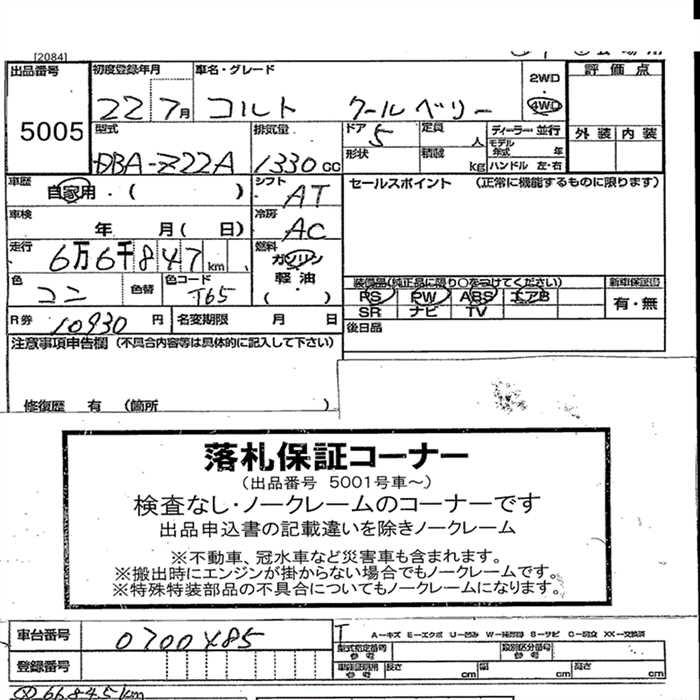 [2084]
出品番号 初度登録年月 車名・グレード 2WD 評価点
5005 22 7月 コルト クールベリー 4WD
型式 排気量 ドア 定員 ディーラー・並行 外装 内装
DBA-Z22A 1330cc 5 人 モデル年式 年
形状 積載 kg ハンドル 左・右
車歴 自家用・( ) シフト AT セールスポイント (正常に機能するものに限ります)
車検 年 月( 日) 冷房 AC
走行 6万6千847km 燃料 ガソリン 軽油 ( )
色 コン 色替 色コード T65 装備品(純正品に限り○をつけてください) 新車保証書
PS PW ABS エアB 有・無
SR ナビ TV
R券 10930円 名変期限 月 日 後日品
注意事項申告欄 (不具合内容等は具体的に記入して下さい)
修復歴 有 (箇所 )
落札保証コーナー
(出品番号 5001号車~)
検査なし・ノークレームのコーナーです
出品申込書の記載違いを除きノークレーム
※不動車、冠水車など災害車も含まれます。
※搬出時にエンジンが掛からない場合でもノークレームです。
※特殊特装部品の不具合についてもノークレームになります。
車台番号 0700485 A-キズ E-エクボ U-凹み W-補修跡 S-サビ C-腐食 XX-交換済
型式指定番号 参考 類別区分番号 参考
登録番号 車検証明用 参考 長さ cm 幅 cm 高さ cm
66845km